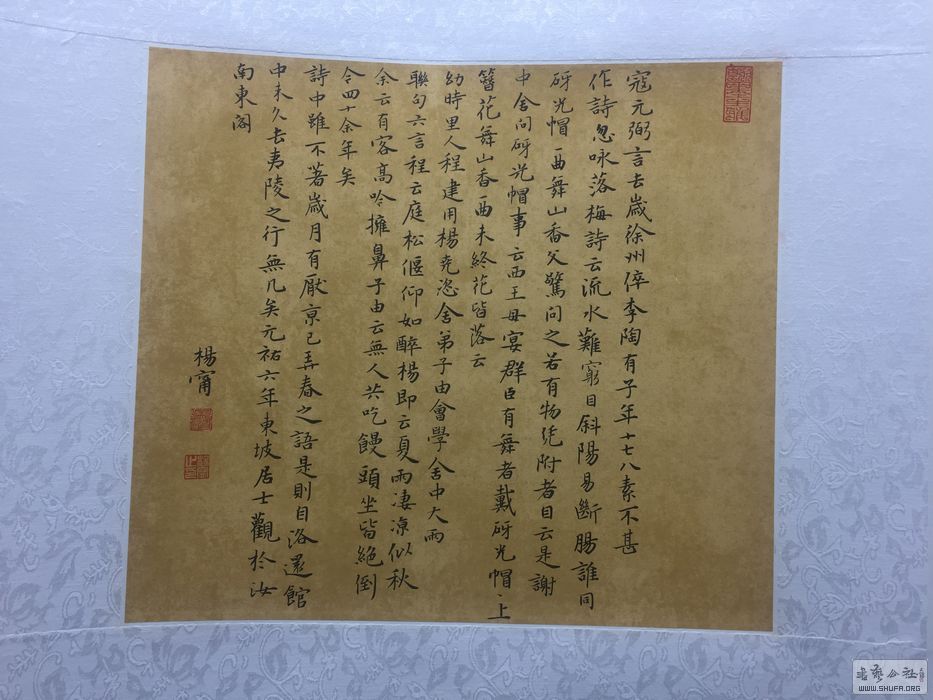 寇元弼言去歲徐州倅李陶有子年十七八素不甚
作詩忽咏落梅詩云流水難窮目斜陽易斷腸誰同
砑光帽一曲舞山香父驚問之若有物凭附者自云是謝
中舍問砑光帽事云西王母宴群臣有舞者戴砑光帽〻上
簪花舞山香一曲未終花皆落云
幼時里人程建用楊尭恣舍弟子由會學舍中大雨
聯句六言程云庭松偃仰如醉楊即云夏雨凄凉似秋
余云有客高吟擁鼻子由云無人共吃饅頭坐皆絕倒
今四十余年矣
詩中雖不著歲月有厭京已弄春之語是則自洛還館
中未久去夷陵之行無几矣元祐六年東坡居士觀於汝
南東閣
楊甯
書藝公社
WWW.SHUFA.ORG